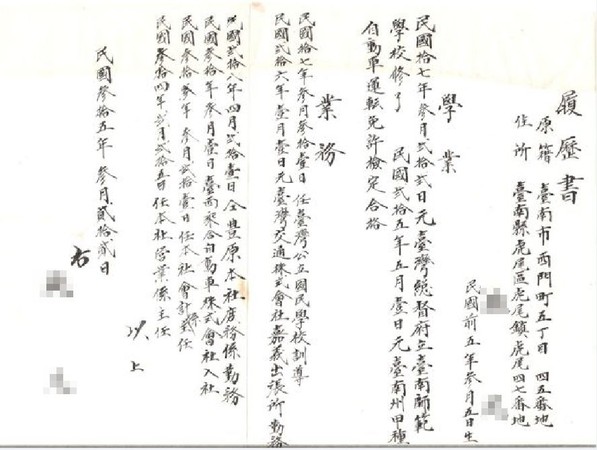 履歷書
原籍 臺南市西門町五丁目四五番地
住所 臺南縣虎尾區虎尾鎮虎尾四七番地
民國前五年參月五日生
學業
民國拾七年參月貳拾貳日元臺灣總督府立臺南師範
學校修了 民國貳拾五年五月壹日元臺南州甲種
自動車運転免許檢定合格
業務
民國拾七年參月參拾壹日任臺灣公立國民學校訓導
民國貳拾六年壹月壹日元臺灣交通株式會社嘉義出張所勤務
民國貳拾八年四月貳拾壹日仝豐原本社庶務係勤務
民國參拾年參月壹日臺西聚合自動車株式會社入社
民國參拾參年參月貳拾壹日任本社會計係主任
民國參拾四年貳月貳拾五日任本社營業係主任
以上
民國參拾五年參月貳拾貳日
右